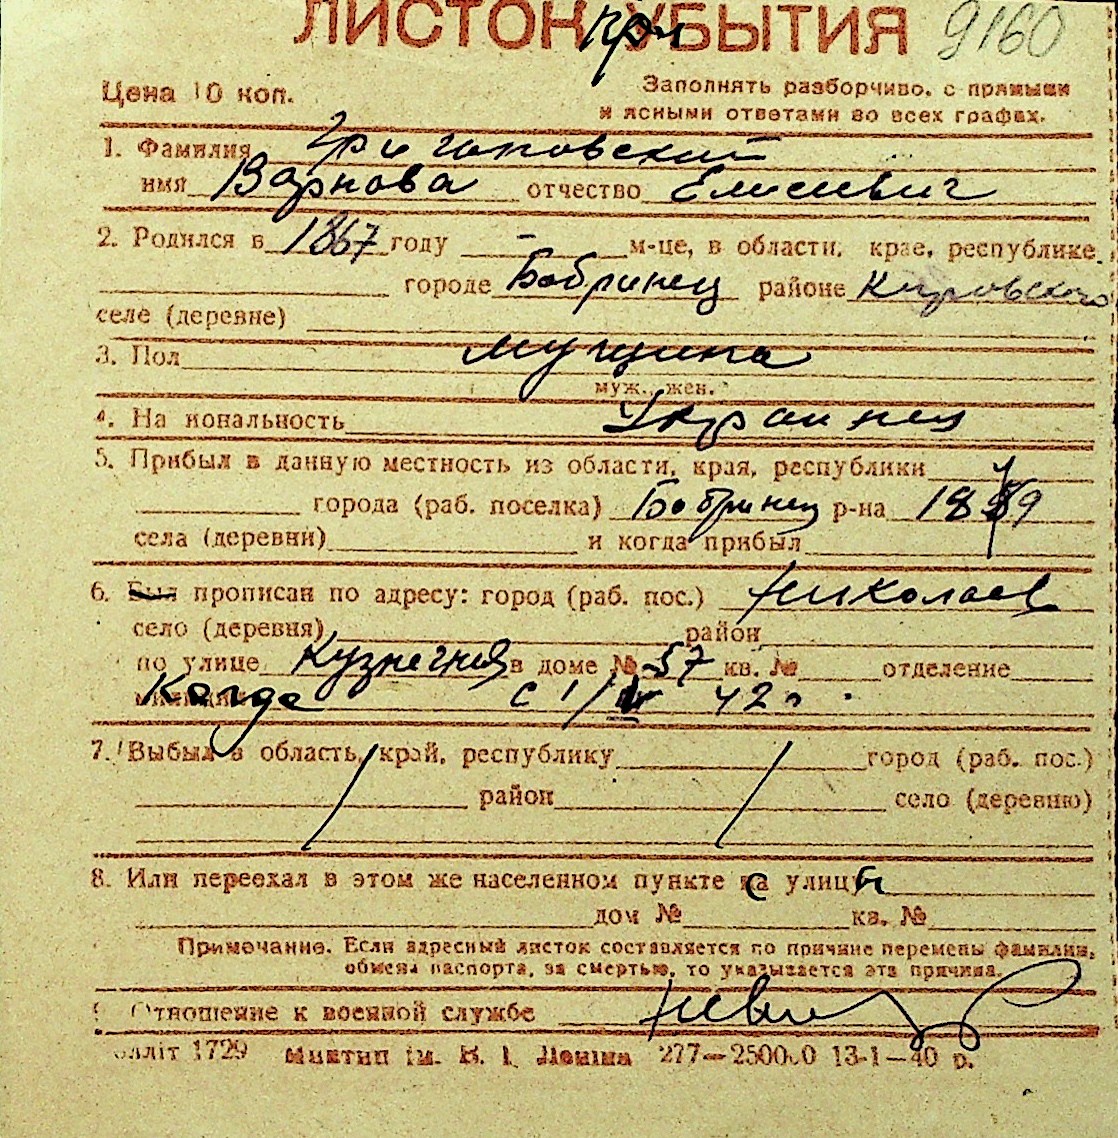 ЛИСТОК УБЫТИЯ При 9160
Цена 10 коп. Заполнять разборчиво, с прямыми
и ясными ответами во всех графах.
1. Фамилия
имя Варнова отчество Елисеевич
2. Родился в 1867 году — м-це, в области, крае, республике
городе Бобринец районе Кировского
селе (деревне)
3. Пол мущина
муж., жен.
4. Национальность Украинец
5. Прибыл в данную местность из области, края, республики
города (раб. поселка) Бобринец р-на
села (деревни) и когда прибыл
6. Был прописан по адресу: город (раб. пос.) Николаев
село (деревня) район
по улице Кузнечная в доме № 57 кв. № отделение
милиции Когда с 1/ 42 г.
7. Выбыл в область, край, республику город (раб. пос.)
район село (деревню)
8. Или переехал в этом же населенном пункте на улицу
дом № кв. №
Примечание. Если адресный листок составляется по причине перемены фамилии,
обмена паспорта, за смертью, то указывается эта причина.
9 Отношение к военной службе
олліт 1729 Миктип ім. В. І. Леніна 277—250000 13-1—40 р.